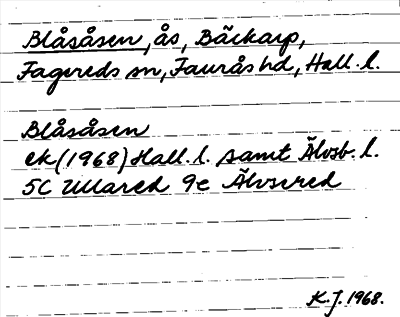 Blåsåsen, ås, Bäckarp,
Fagereds sn, Faurås hd, Hall. l.
Blåsåsen
ek (1968) Hall. l. samt Älvsb. l.
5C Ullared 9e Älvsered
K.J. 1968.